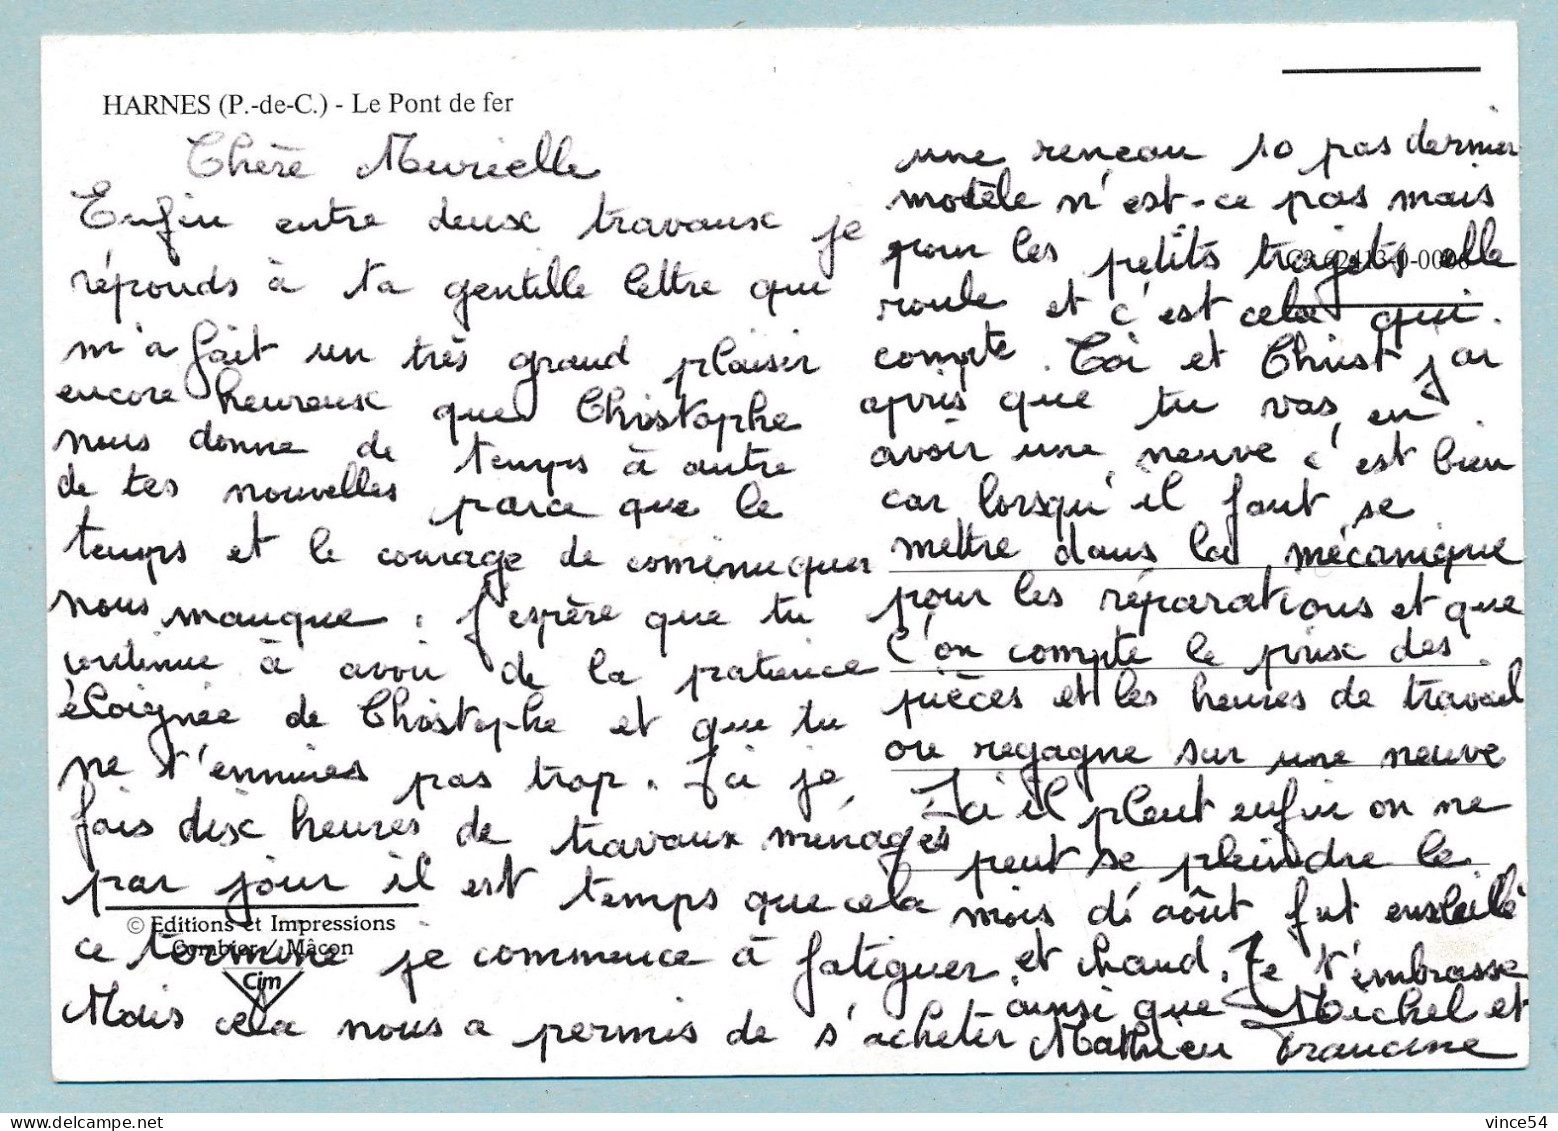 HARNES (P.-de-C.) - Le Pont de fer
Chère Murielle
Enfin entre deux travaux je
réponds à ta gentille lettre qui
m'a fait un très grand plaisir
encore heureux que Christophe
nous donne de temps à autre
de tes nouvelles parce que le
temps et le courage de comminuquer
nous manque. J'espère que tu
continue à avoir de la patience
éloignée de Christophe et que tu
ne t'ennuies pas trop. Ici je
fais dix heures de travaux ménagés
par jour il est temps que cela
© Editions et Impressions
Combier / Mâcon
ce termine je commence à fatiguer
Cim
Mais cela nous a permis de s'acheter
une reneau 10 pas dernier
modèle n'est-ce pas mais
pour les petits trajets elle
roule et c'est cela qui
compte. Toi et Christ j'ai
apris que tu vas en
avoir une neuve c'est bien
car lorsqu'il faut se
mettre dans la mécanique
pour les réparations et que
l'on compte le prix des
pièces et les heures de travail
on regagne sur une neuve
Ici il pleut enfin on ne
peut se pleindre le
mois d'août fut ensleillé
et chaud. Je t'embrasse
ainsi que Michel et
Mathieu Francine
vince54